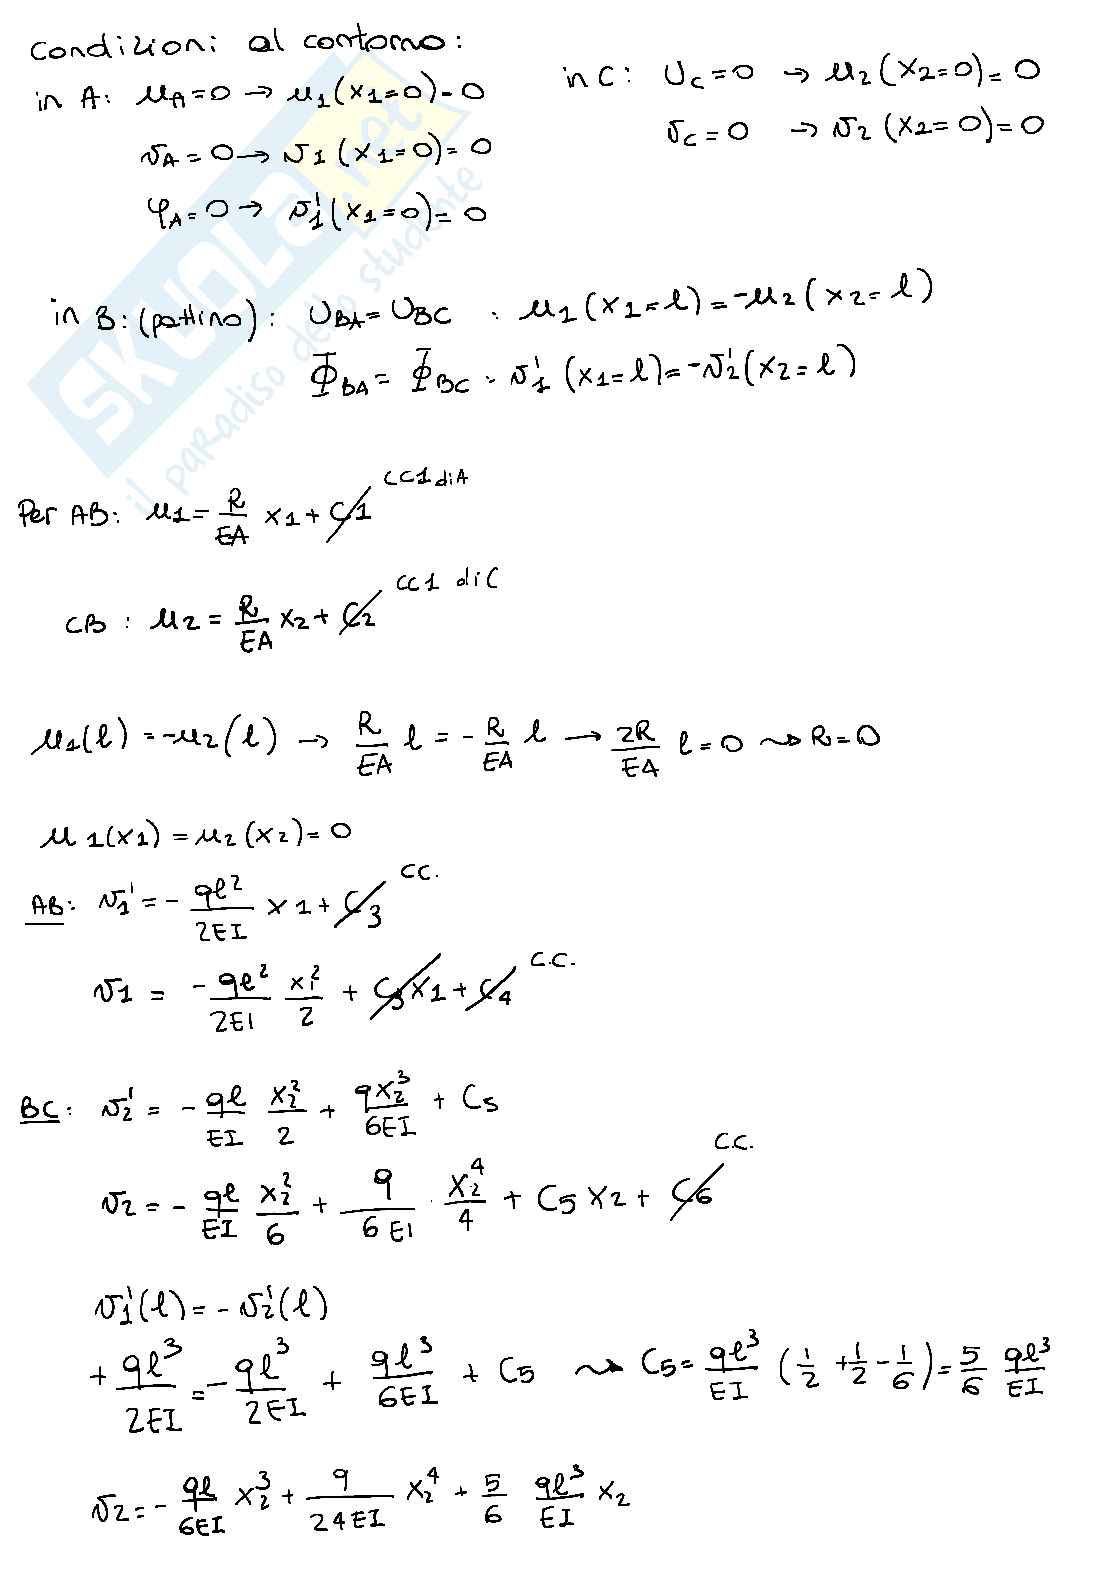 Condizioni al contorno:
in A: u_A=0 → u_1(x_1=0)=0
v_A=0 → v_1(x_1=0)=0
φ_A=0 → v_1'(x_1=0)=0
in C: U_C=0 → u_2(x_2=0)=0
v_C=0 → v_2(x_2=0)=0
in B: (pattino): U_BA=U_BC : u_1(x_1=l)=-u_2(x_2=l)
Φ_BA=Φ_BC : v_1'(x_1=l)=-v_2'(x_2=l)
Per AB: u_1=R/EA x_1+C_1 CC1 di A
CB: u_2=R/EA x_2+C_2 CC1 di C
u_1(l)=-u_2(l) → R/EA l=-R/EA l → 2R/EA l=0 ⇝ R=0
u_1(x_1)=u_2(x_2)=0
AB: v_1'=-ql²/2EI x_1+C_3 C.C.
v_1=-ql²/2EI x_1²/2+C_3x_1+C_4 C.C.
BC: v_2'=-ql/EI x_2²/2+qx_2³/6EI+C_5
v_2=-ql/EI x_2²/6+q/6EI·x_2⁴/4+C_5x_2+C_6 C.C.
v_1'(l)=-v_2'(l)
+ql³/2EI=-ql³/2EI+ql³/6EI+C_5 ⇝ C_5=ql³/EI(1/2+1/2-1/6)=5/6 ql³/EI
v_2=-ql/6EI x_2³+q/24EI x_2⁴+5/6 ql³/EI x_2
SKUOLA.net
il paradiso dello studente